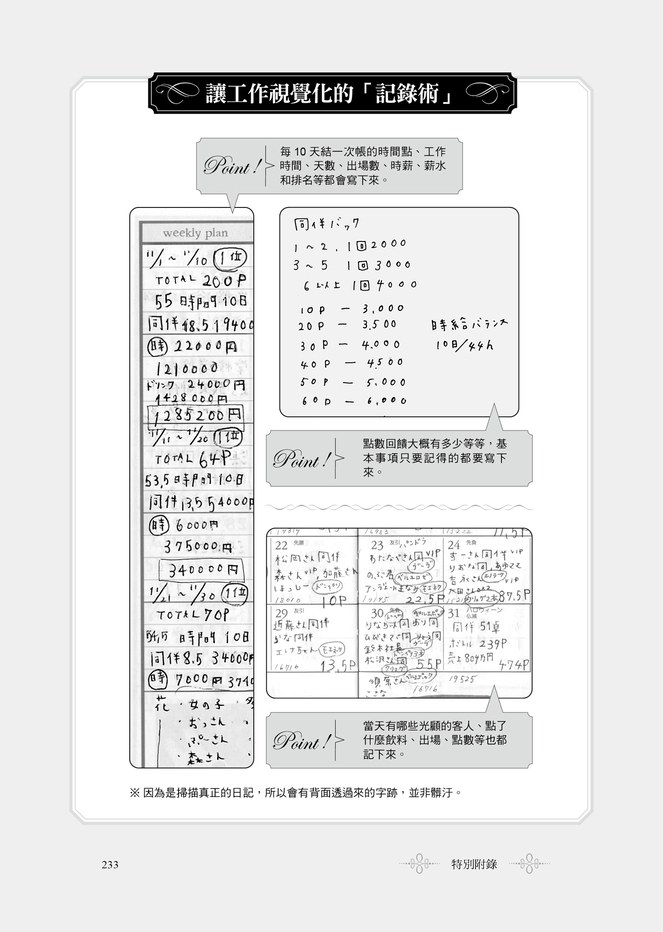 讓工作視覺化的「記錄術」
Point!
每 10 天結一次帳的時間點、工作
時間、天數、出場數、時薪、薪水
和排名等都會寫下來。
weekly plan
11/1 ~ 11/10 1位
TOTAL 200P
55時間10日
同伴48.5 19400
時 22000円
1210000
ドリンク 24000円
1428000円
1285200円
11/11 ~ 11/20 1位
TOTAL 64P
53,5時間10日
同伴13,5 54000円
時 6000円
375000円
340000円
1位
TOTAL 70P
時間 10日
同伴8.5 34000円
時 7000円
花 ・女の子
・おっさん
・ぷーさん
・森さん
同伴バック
1~2, 1回2000
3~5 1回3000
6以上 1回4000
10P — 3,000
20P — 3,500
30P — 4,000
40P — 4,500
50P — 5,000
60P — 6,000
時給バランス
10日/44h
Point!
點數回饋大概有多少等等,基
本事項只要記得的都要寫下
來。
22 先勝
松岡さん同伴
森さんVIP
10P
23 友引
22.5P
24 先負
37.5P
29 友引
近藤さん同伴
16716
13.5P
30
鈴木社長
55P
16716
31 ハロウィーン
仏滅
同伴 51卓
ボトル 239P
売上809万円
474P
19525
Point!
當天有哪些光顧的客人、點了
什麼飲料、出場、點數等也都
記下來。
※ 因為是掃描真正的日記,所以會有背面透過來的字跡,並非髒汙。
233
特別附錄